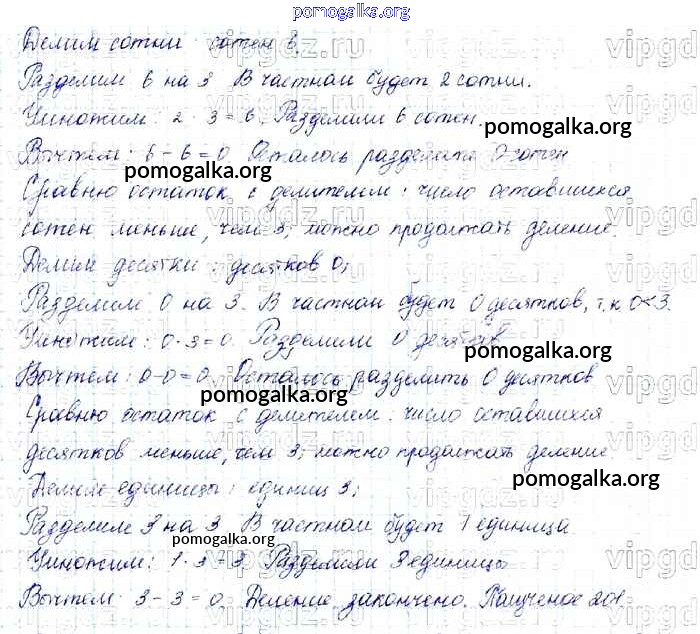 pomogalka.org
Делим сотни: сотен 3.
Разделим 6 на 3. В частном будет 2 сотни.
Умножим: 2 · 3 = 6. Разделили 6 сотен.
pomogalka.org
Вычтем: 6 - 6 = 0. Осталось разделить 0 сотен
pomogalka.org
Сравню остаток с делителем: число оставшихся
сотен меньше, чем 3; можно продолжать деление.
Делим десятки: десятков 0;
Разделим 0 на 3. В частном будет 0 десятков, т.к. 0<3.
Умножим: 0·3=0. Разделили 0 десятков
pomogalka.org
Вычтем: 0-0=0. Осталось разделить 0 десятков
pomogalka.org
Сравню остаток с делителем: число оставшихся
десятков меньше, чем 3; можно продолжать деление
pomogalka.org
Делим единицы: единиц 3;
Разделим 3 на 3. В частном будет 1 единица.
pomogalka.org
Умножим: 1·3=3. Разделили 3 единицы
Вычтем: 3-3=0. Деление закончено. Полученое 201.
pomogalka.org